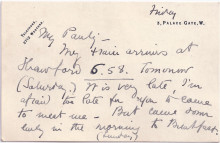 Friday
TELEPHONE
2, PALACE GATE, W.
My Pauly -
My train arrives at
5.58. Tomorrow
(Saturday.) It is very late, I'm
afraid too late for you to come
to meet me - But come down
early in the morning to Breakfast.
(Sunday)